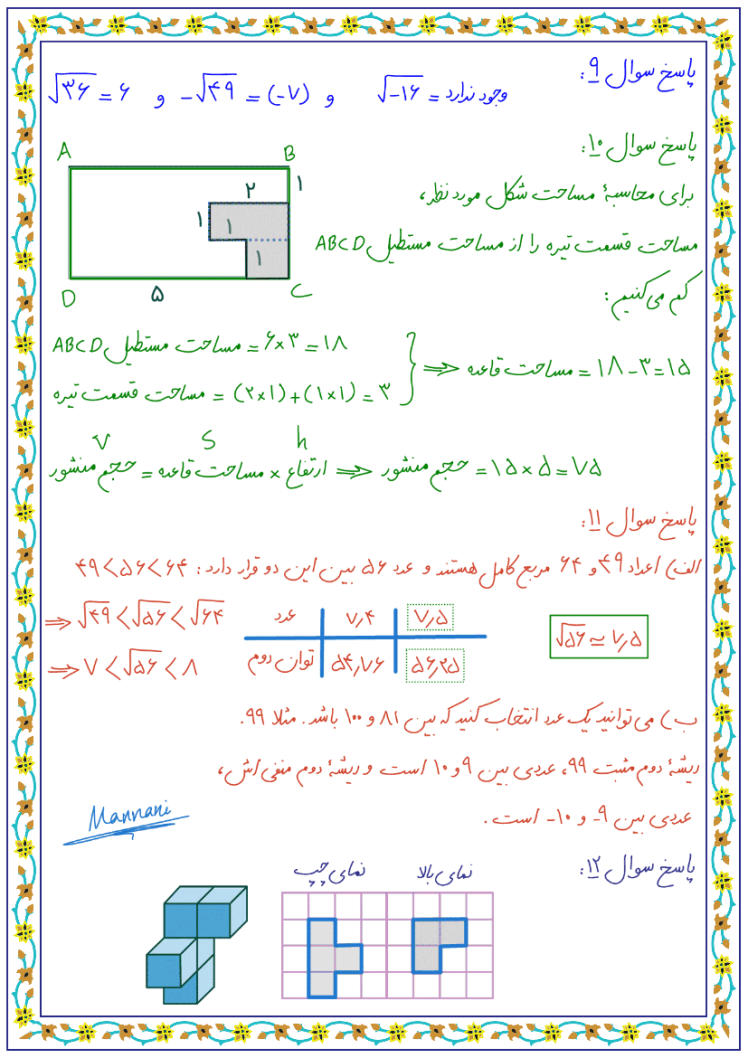 پاسخ سوال ۹:
√۳۶ = ۶ و -√۴۹ = (-۷) و √-۱۶ = وجود ندارد
پاسخ سوال ۱۰:
A B
۱
۲
برای محاسبهٔ مساحت شکل مورد نظر،
۱ ۱
مساحت قسمت تیره را از مساحت مستطیل ABCD
۱
کم می‌کنیم:
D ۵ C
مساحت مستطیل ABCD = ۶×۳ = ۱۸
⇒ مساحت قاعده = ۱۸-۳ = ۱۵
مساحت قسمت تیره = (۲×۱)+(۱×۱) = ۳
V S h
حجم منشور = مساحت قاعده × ارتفاع ⇒ حجم منشور = ۱۵×۵ = ۷۵
پاسخ سوال ۱۱:
الف) اعداد ۴۹ و ۶۴ مربع کامل هستند و عدد ۵۶ بین این دو قرار دارد: ۴۹<۵۶<۶۴
⇒ √۴۹ < √۵۶ < √۶۴
عدد ۷٫۴ ۷٫۵
√۵۶ ≃ ۷٫۵
⇒ ۷ < √۵۶ < ۸
توان دوم ۵۴٫۷۶ ۵۶٫۲۵
ب) می‌توانید یک عدد انتخاب کنید که بین ۸۱ و ۱۰۰ باشد. مثلا ۹۹.
ریشهٔ دوم مثبت ۹۹، عددی بین ۹ و ۱۰ است و ریشهٔ دوم منفی اش،
عددی بین ۹- و ۱۰- است.
Mannani
پاسخ سوال ۱۲:
نمای بالا نمای چپ